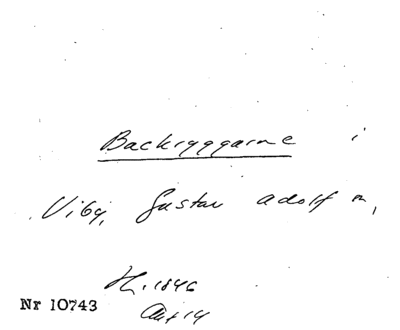 Backryggarne i
Viby, Gustav Adolf m,
H. 1846
Nr 10743